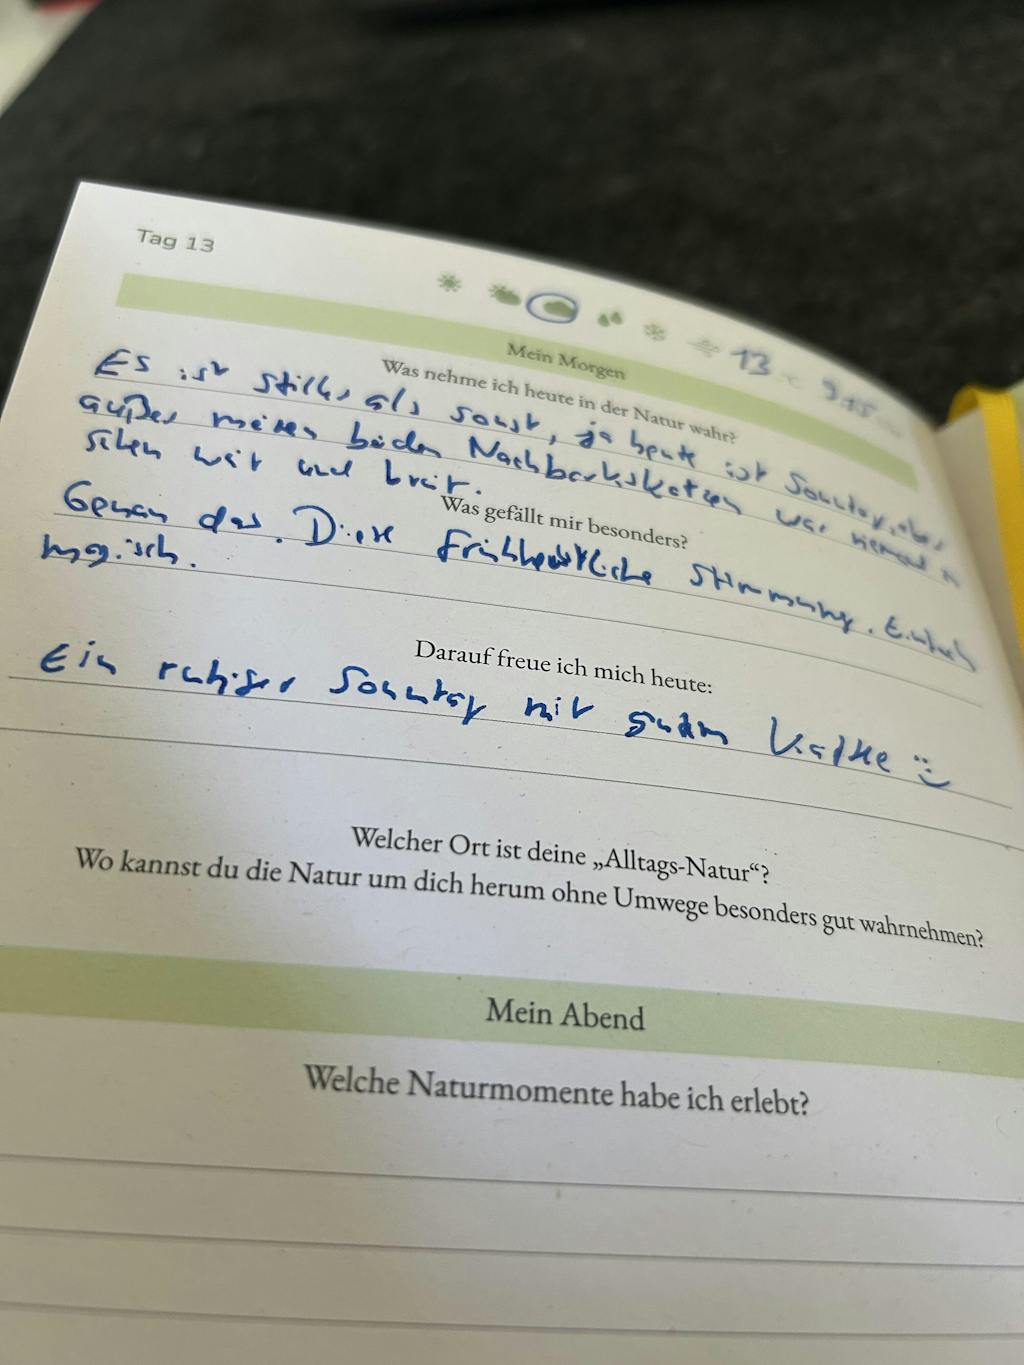 Tag 13
13
Mein Morgen
Was nehme ich heute in der Natur wahr?
Es ist stiller als sonst, ja heute ist Sonntag, aber
außer meinen beiden Nachbarskatzen war niemand zu
sehen weit und breit.
Was gefällt mir besonders?
Genau das. Diese frühherbstliche Stimmung. Einfach
magisch.
Darauf freue ich mich heute:
Ein ruhiger Sonntag mit gutem Kaffee
Welcher Ort ist deine „Alltags-Natur“?
Wo kannst du die Natur um dich herum ohne Umwege besonders gut wahrnehmen?
Mein Abend
Welche Naturmomente habe ich erlebt?